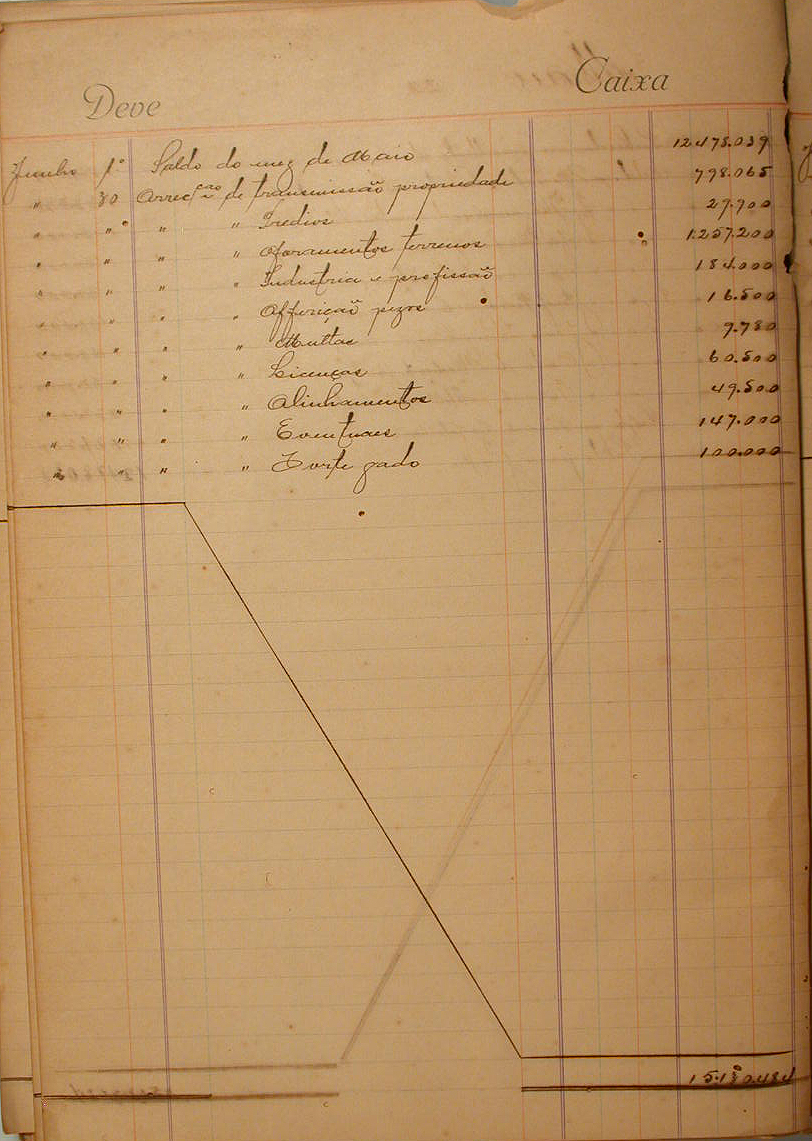 Deve Caixa
Junho 1º Saldo do mez de Maio 12478.039
" 30 Arrecção de transmissão propriedade 798.065
" " " " Predios 27.700
" " " " Aforamentos terrenos 1.257.200
" " " " Industria e profissão 184.000
" " " " Afferição pezos 16.500
" " " " Multas 7.780
" " " " Licenças 60.500
" " " " Alinhamentos 49.500
" " " " Eventuaes 147.000
" " " " Córte gado 100.000
15.180.484